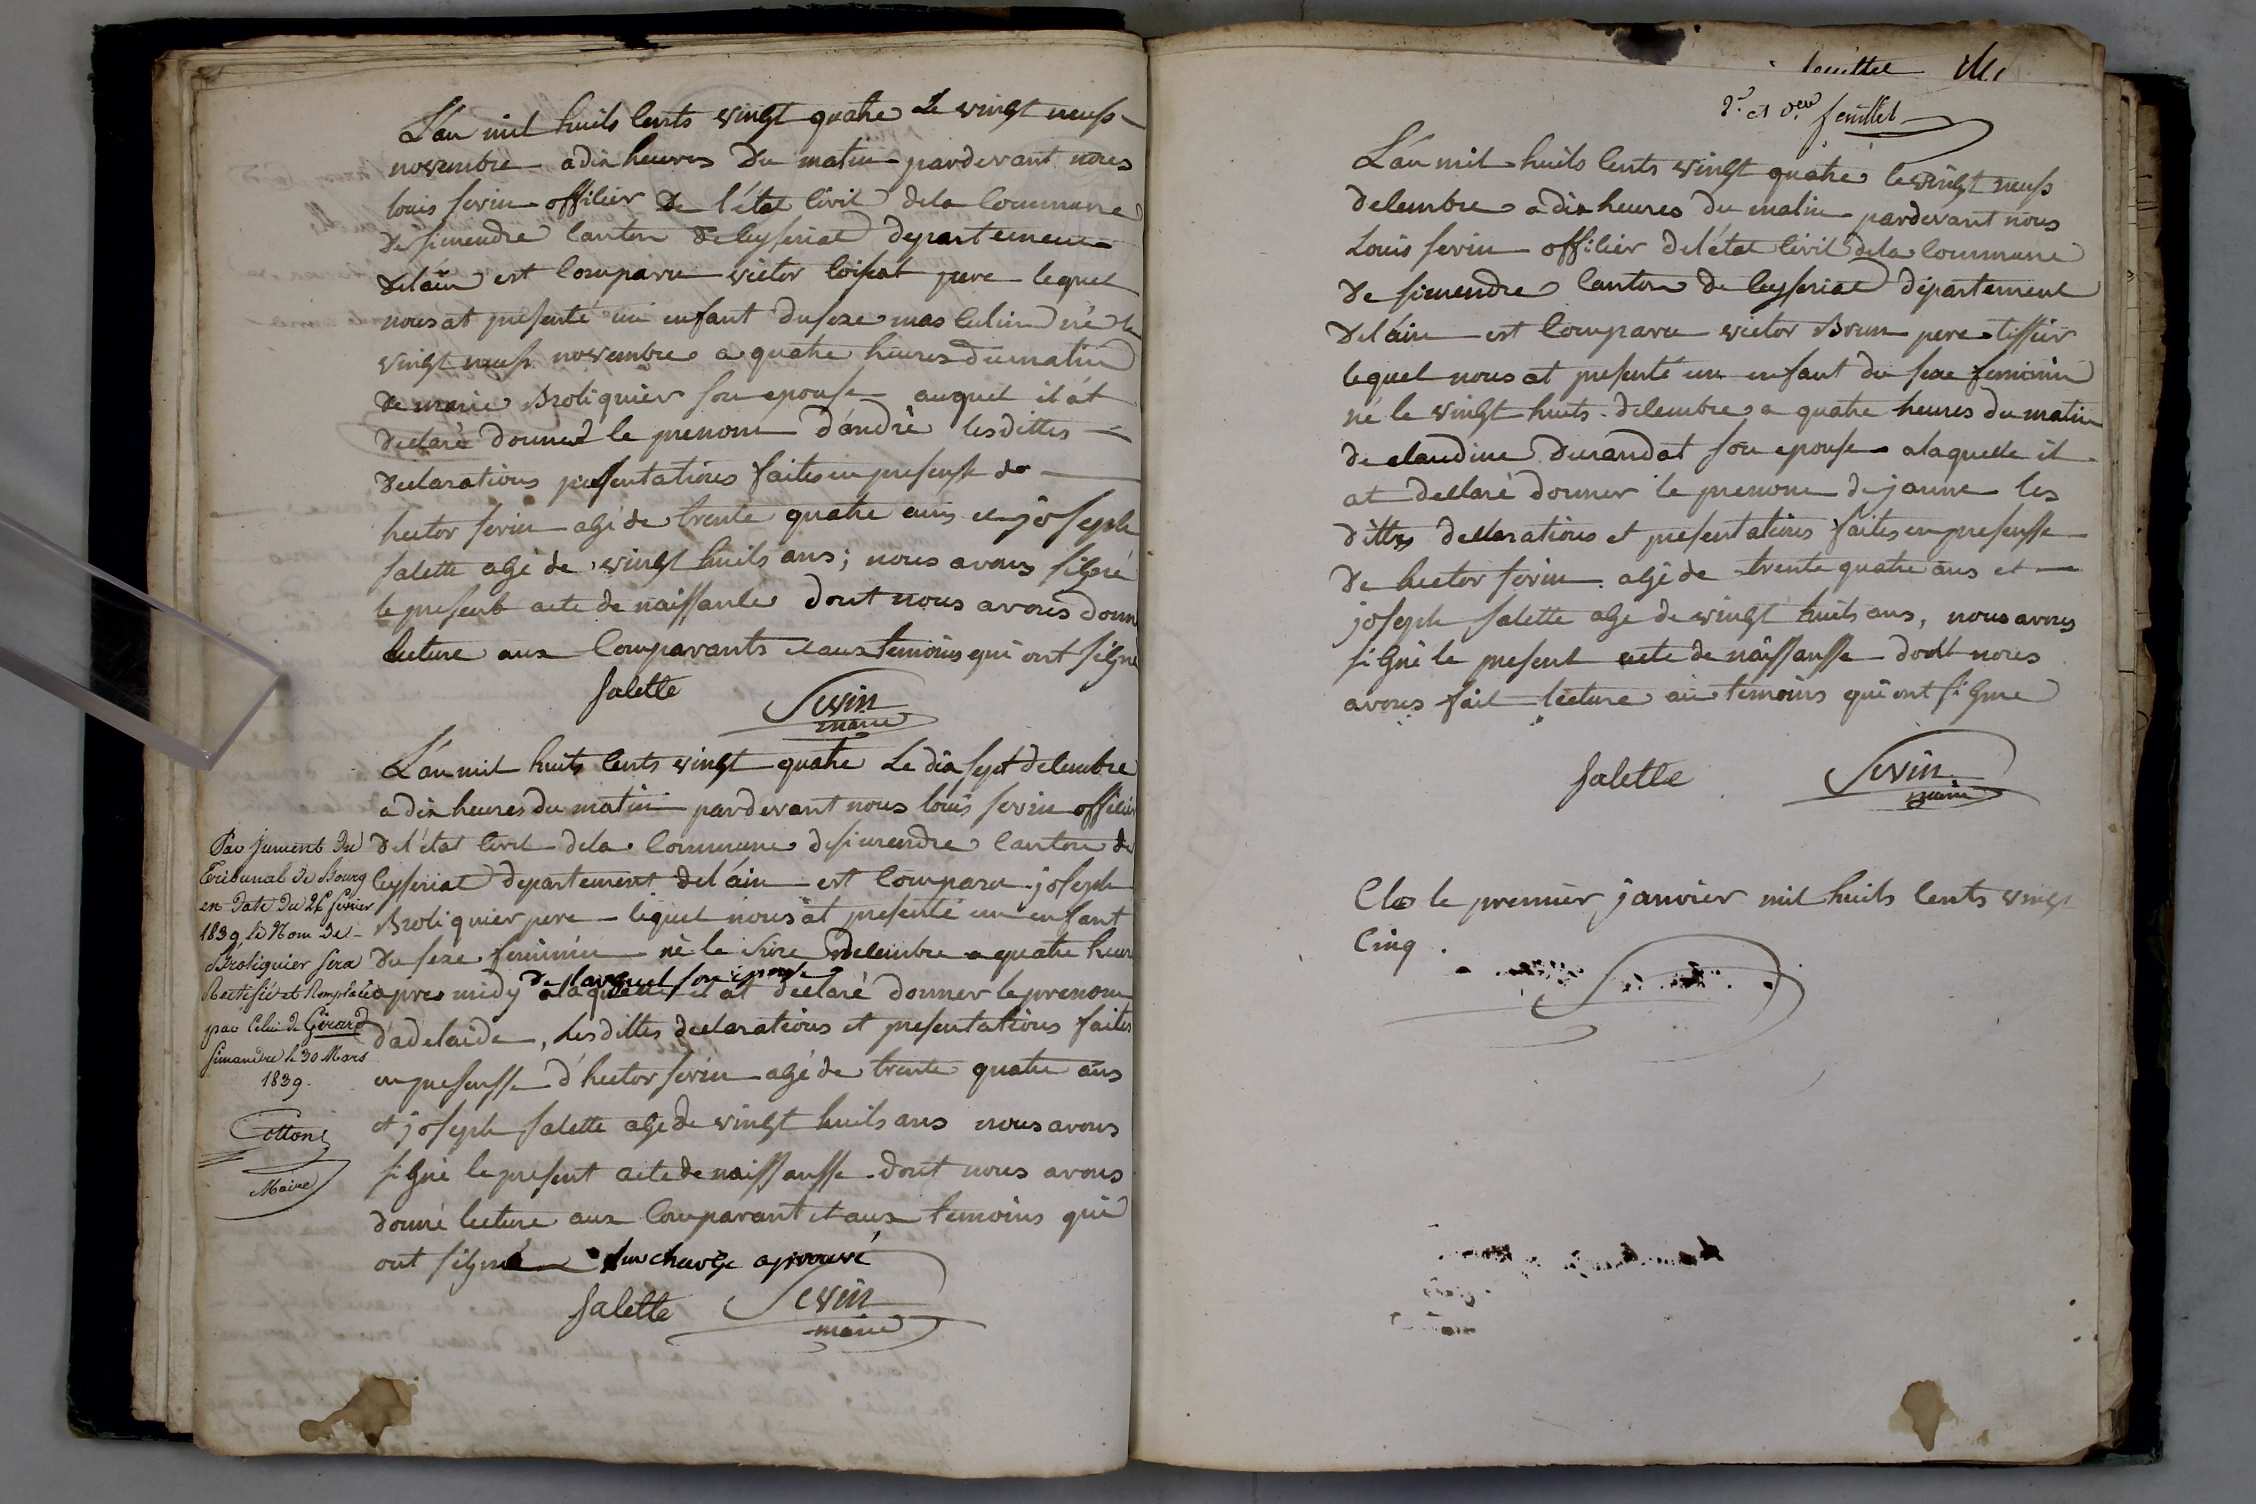 L'an mil huits cents vingt quatre Le vingt neufs
novembre a dix heures Du matin pardevant nous
louis sevin officier De l'état civil dela Commune
De simendre canton de Ceyseriat departement
Delain est comparu victor loisat pere lequel
nous at presenté un enfant du sexe masculin né le
vingt neufs novembre a quatre heures du matin
De marie Broliquier son epouse auquel il at
declaré donner le prenom d'andré lesdittes
declarations presentations faites en presense de
hector sevin agé de trente quatre ans et joseph
salette agé de vingt huits ans; nous avons signé
le present acte de naissance dont nous avons donn
lecture aux Comparants et aux temoins qui ont signé
salette Sevin
maire
L'an mil huits cents vingt quatre Le dix sept decembre
a dix heures du matin pardevant nous louis sevin officier
Del'état civil dela Commune desimendre Canton de
Ceyseriat departement del'ain est Comparu joseph
Broliquier pere lequel nous at presenté un enfant
Du sexe feminin né le seize decembre a quatre heure
apres midy a laquelle il at declaré donner le prenom
d'adelaide, Lesdittes declarations et presentations faites
en presensse d'hector sevin agé de trente quatre ans
et joseph salette agé de vingt huits ans nous avons
signé le present acte de naissansse dont nous avons
donné lecture aux Comparant et aux temoins qui
ont signé surcharge aprouvé
salette Sevin
maire
Par jument du
Tribunal de Bourg
en date du 26 fevrier
1839, le Nom de
Broliquier sera
Rectifié et Remplacé
par Celui de Girard
Simandre le 30 Mars
1839.
Cotton
Maire
feuillet
2.e et d.er feuillet
L'an mil huits cents vingt quatre le vingt neufs
decembre a dix heures du matin pardevant nous
Louis sevin officier del'état civil dela Commune
De simendre Canton de Ceyseriat département
Del'ain est Comparu victor Brun pere tissier
lequel nous at presenté un enfant du sexe feminin
né le vingt huits decembre a quatre heures du matin
de claudine Durandat son epouse alaquelle il
at declaré donner le prenom de janne les
dittes declarations et presentations faites en presensse
De hector sevin agé de trente quatre ans et
joseph salette agé de vingt huits ans, nous avons
signé le present acte de naissansse dont nous
avons fait lecture au temoins qui ont signé
salette Sevin
maire
Clos le premier janvier mil huits cents vingt
Cinq.